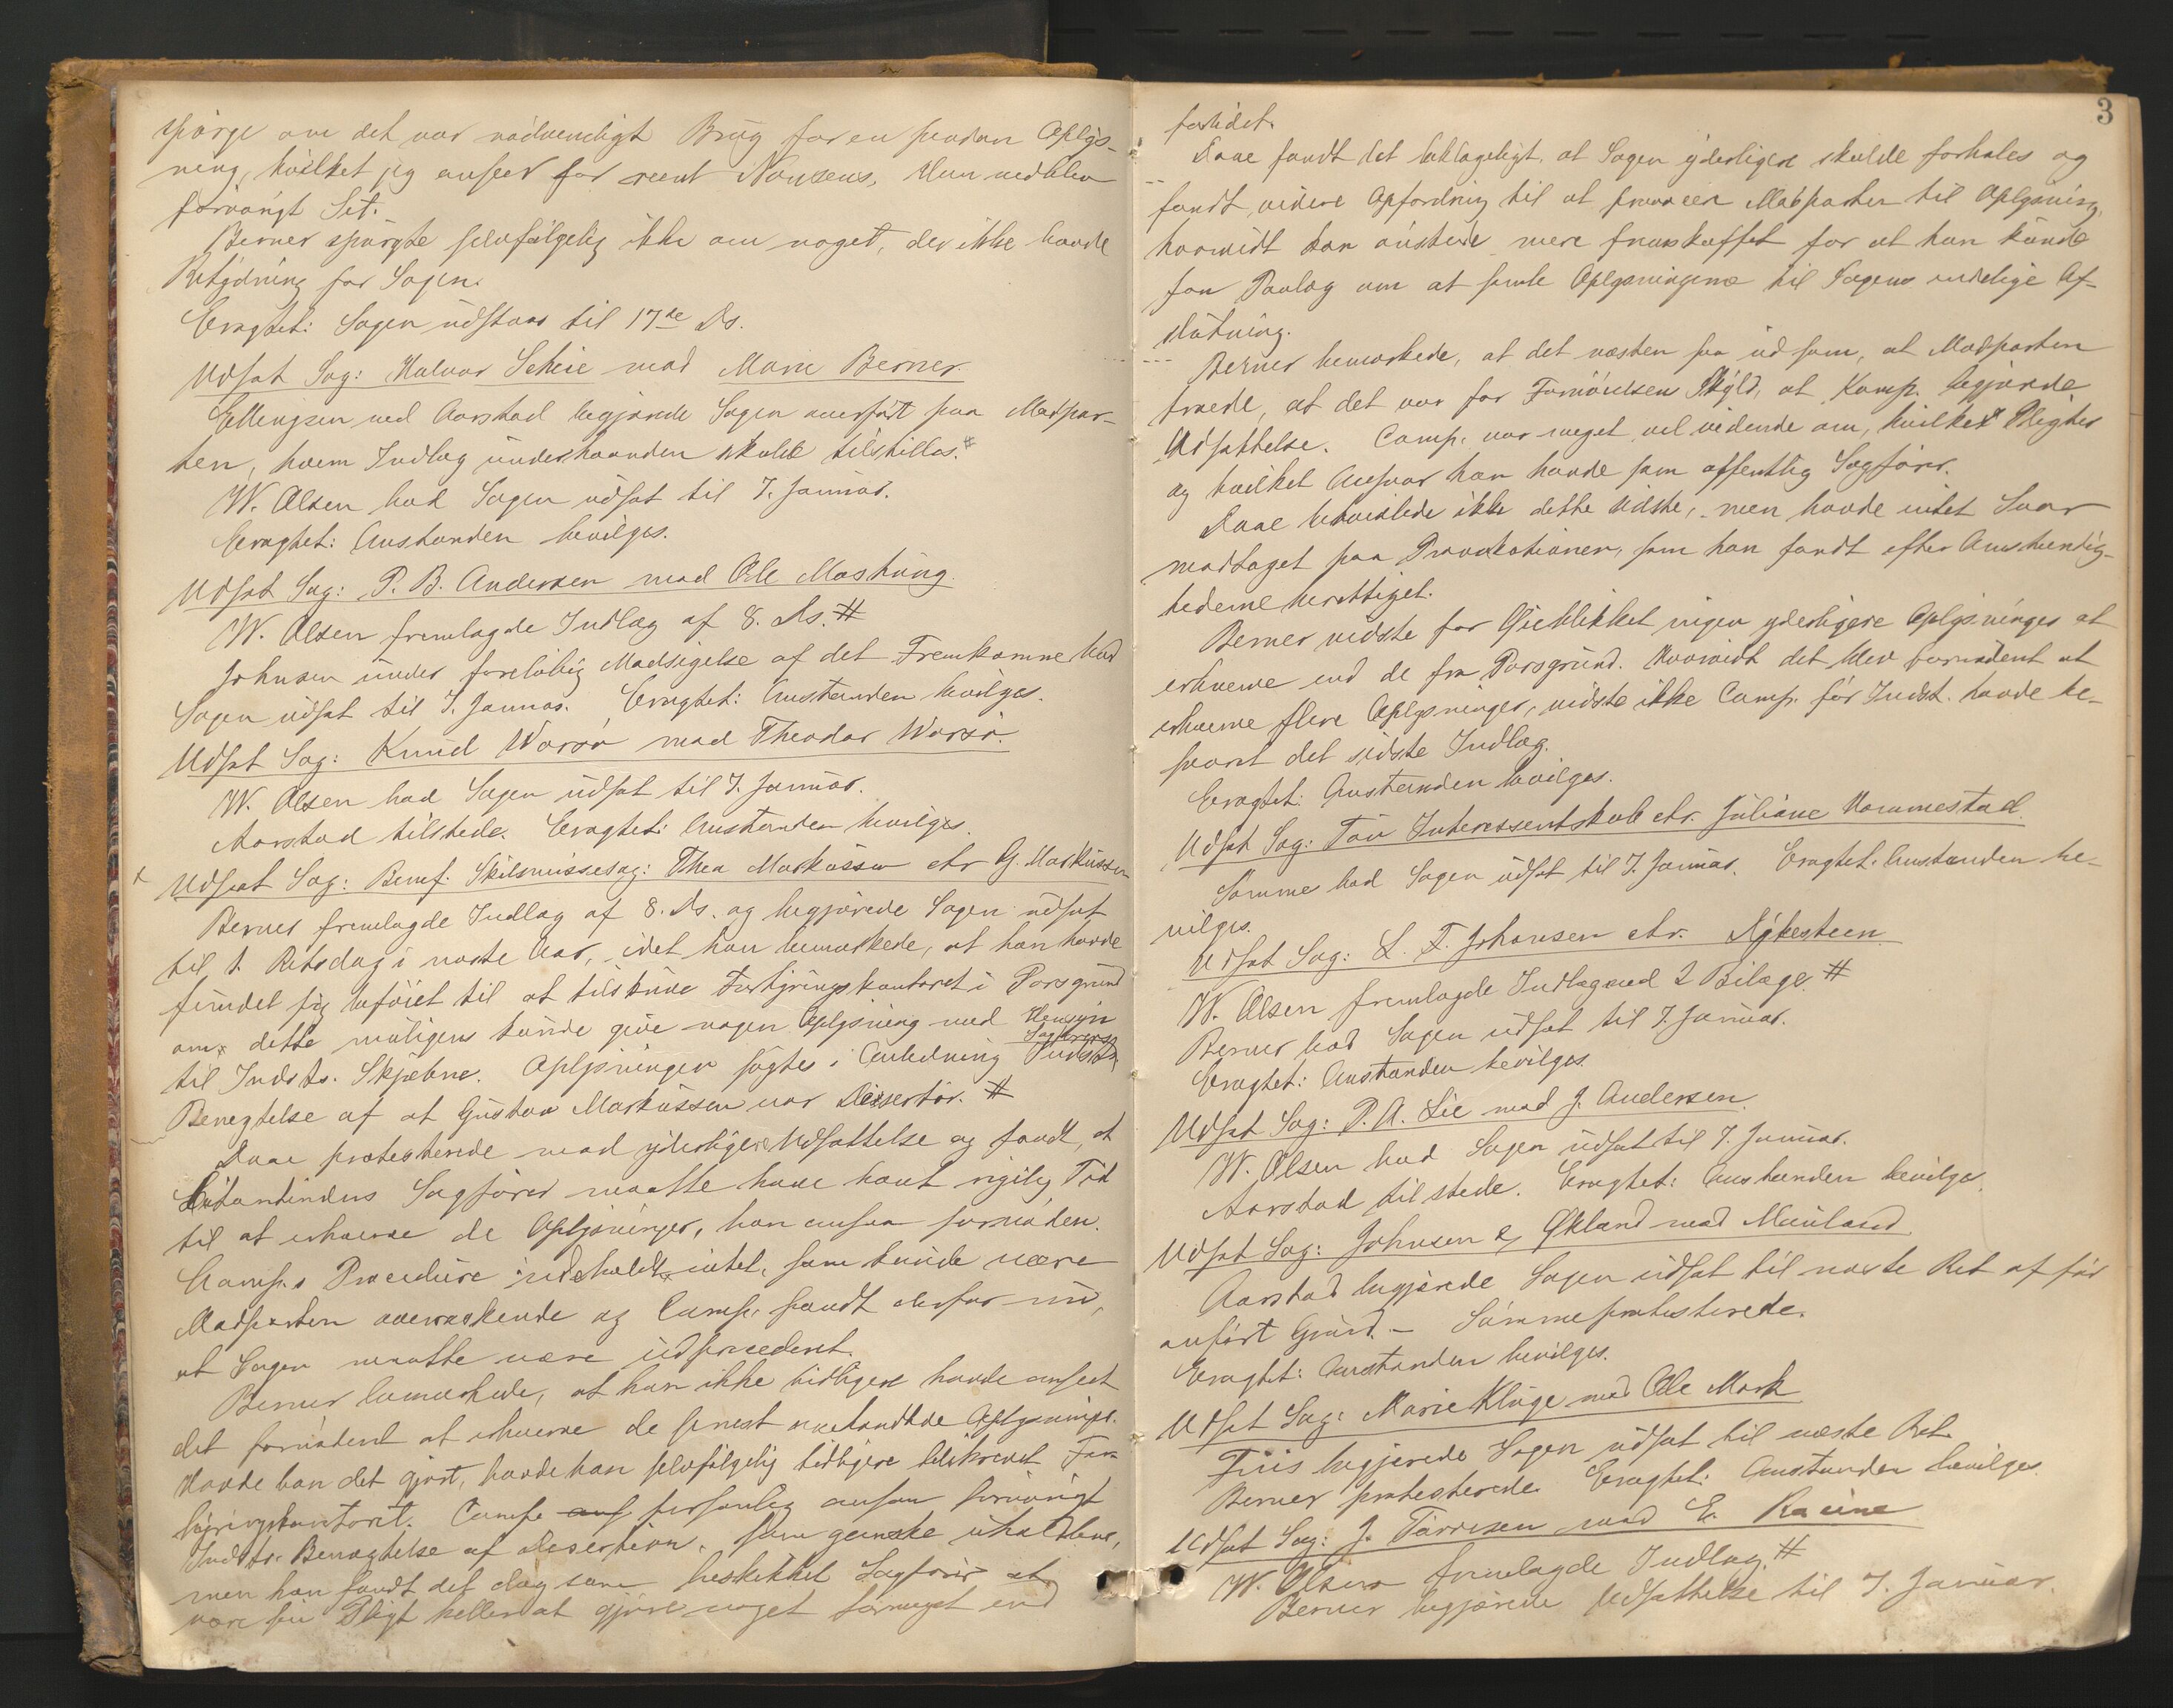 spørge om det var nødvendigt Brug for en saadan Oplys-
ning, hvilket jeg anser for reent Nonsens. Han vedblev
forøvrigt Sit.
Berner spurgte selvfølgelig ikke om noget, der ikke havde
Betydning for Sagen.
Eragtet: Sagen udstaar til 17de Ds.
Udsat Sag: Halvor Scheie mod Marie Berner.
Ellingsen ved Aarstad begjærede Sagen overført paa Modpar-
ten, hvem Indlæg underhaanden skulde tilstilles. #
W. Olsen bad Sagen udsat til 7. Januar.
Eragtet: Anstanden bevilges.
Udsat Sag: P. B. Andersen mod Ole Moshung.
W. Olsen fremlagde Indlæg af 8. Ds. #
Johnsen under foreløbig Modsigelse af det Fremkomne bad
Sagen udsat til 7. Januar. Eragtet: Anstanden bevilges.
Udsat Sag: Knud Worsø mod Theodor Worsø.
W. Olsen bad Sagen udsat til 7. Januar.
Aarstad tilstede. Eragtet: Anstanden bevilges.
Udsat Sag: Benef. Skilsmissesag: Thea Markussen ctr G. Markussen
Berner fremlagde Indlæg af 8. Ds. og begjærede Sagen udsat
til 1. Retsdag i næste Aar, idet han bemærkede, at han havde
fundet sig beføiet til at tilskrive Forhyringskontoret i Porsgrund
om dette muligens kunde give nogen Oplysning med Hensyn
til Indsts. Skjæbne. Oplysningen søgtes i Anledning Sagførers Indsts
Benegtelse af at Gustav Markussen var Desertør. #
Daae protesterede mod yderligere Udsættelse og fandt, at
Citantindens Sagfører maatte have havt rigelig Tid
til at erhverve de Oplysninger, han ansaa fornøden.
Comp.s Procedure indeholdt intet, som kunde være
Modparten overraskende og Comp. fandt derfor nu,
at Sagen maatte være udprocederet.
Berner bemærkede, at han ikke tidligere havde anseet
det fornødent at erhverve de senest omhandlede Oplysninger.
Havde han det gjort, havde han selvfølgelig tidligere tilskrevet For-
hyringskontoret. Comp. personlig ansaa forøvrigt
Indsts. Benegtelse af Desertion, som ganske uholdbar,
men han fandt det dog som beskikket Sagfører at
være sin Pligt heller at gjøre noget formeget end
forlidet.
3
Daae fandt det beklageligt, at Sagen yderligere skulde forhales og
fandt videre Opfordring til at provocere Modparten til Oplysning,
hvorvidt han ønskede mere fremskaffet for at han kunde
faa Paalæg om at samle Oplysningerne til Sagens endelige Af-
slutning.
Berner bemærkede, at det næsten saa ud som, at Modparten
troede, at det var for Fornøielsens Skyld, at Comp. begjærede
Udsættelse. Comp. var meget vel vidende om, hvilke Pligter
og hvilket Ansvar han havde som offentlig Sagfører.
Daae betvivlede ikke dette sidste, men havde intet Svar
modtaget paa Provokationen, som han fandt efter Omstændig-
hederne berettiget.
Berner vidste for Øieblikket ingen yderligere Oplysninger at
erhverve end de fra Porsgrund. Hvorvidt det blev fornødent at
erhverve flere Oplysninger, vidste ikke Comp. før Indst. havde be-
svaret det sidste Indlæg.
Eragtet: Anstanden bevilges.
Udsat Sag: Tou Interessentskab ctr. Juliane Hommestad.
Sømme bad Sagen udsat til 7. Januar. Eragtet: Anstanden be-
vilges.
Udsat Sag: L. T. Johansen ctr. Nykesteen
W. Olsen fremlagde Indlæg med 2 Bilage. #
Berner bad Sagen udsat til 7. Januar.
Eragtet: Anstanden bevilges.
Udsat Sag: P. A. Lie mod J. Andersen.
W. Olsen bad Sagen udsat til 7. Januar.
Aarstad tilstede. Eragtet: Anstanden bevilges.
Udsat Sag: Johnsen & Økland mod Mauland.
Aarstad begjærede Sagen udsat til næste Ret af før
anført Grund. – Sømme protesterede.
Eragtet: Anstanden bevilges.
Udsat Sag: Marie Kluge mod Ole Mork
Friis begjærede Sagen udsat til næste Ret.
Berner protesterede. Eragtet: Anstanden bevilges.
Udsat Sag: J. Tørresen mod E. Racine
W. Olsen fremlagde Indlæg #
Berner begjærede Udsættelse til 7. Januar.